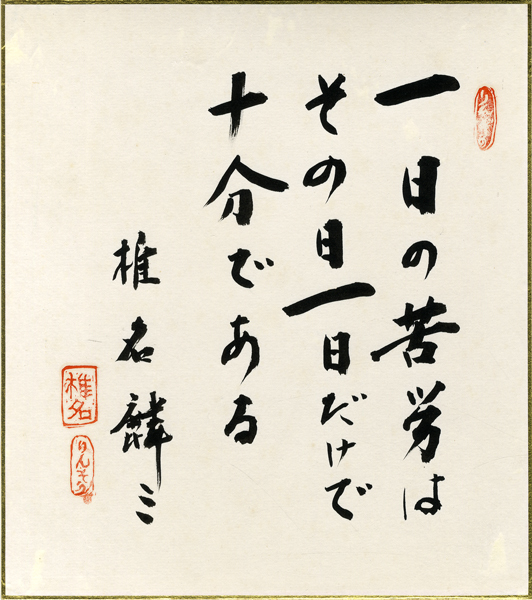 一日の苦労は
その日一日だけで
十分である
椎名麟三
椎名
りんぞう